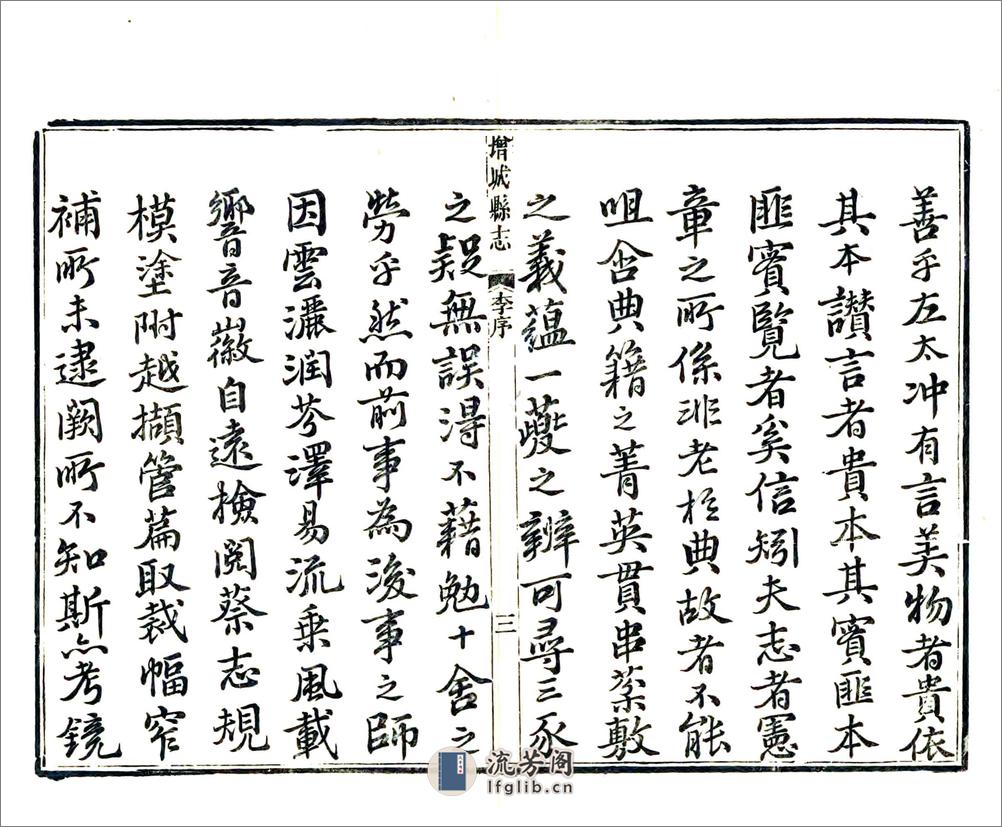 善乎左太冲有言美物者貴依
其本讃言者貴本其實匪本
匪實覽者奚信矧夫志者憲
章之所係非老於典故者不能
咀含典籍之菁英貫串蔡敷
之義蘊一夔之辨可尋三豕
之疑無誤得不藉勉十舍之
勞乎然而前事為後事之師
因雲灑润芩澤易流乗風載
響音徽自遠檢閱蔡志規
模塗附越擷管篇取裁幅窄
補所未逮闕所不知斯亦考鏡
增城縣志
李序
三
流芳阁
lfglib.cn